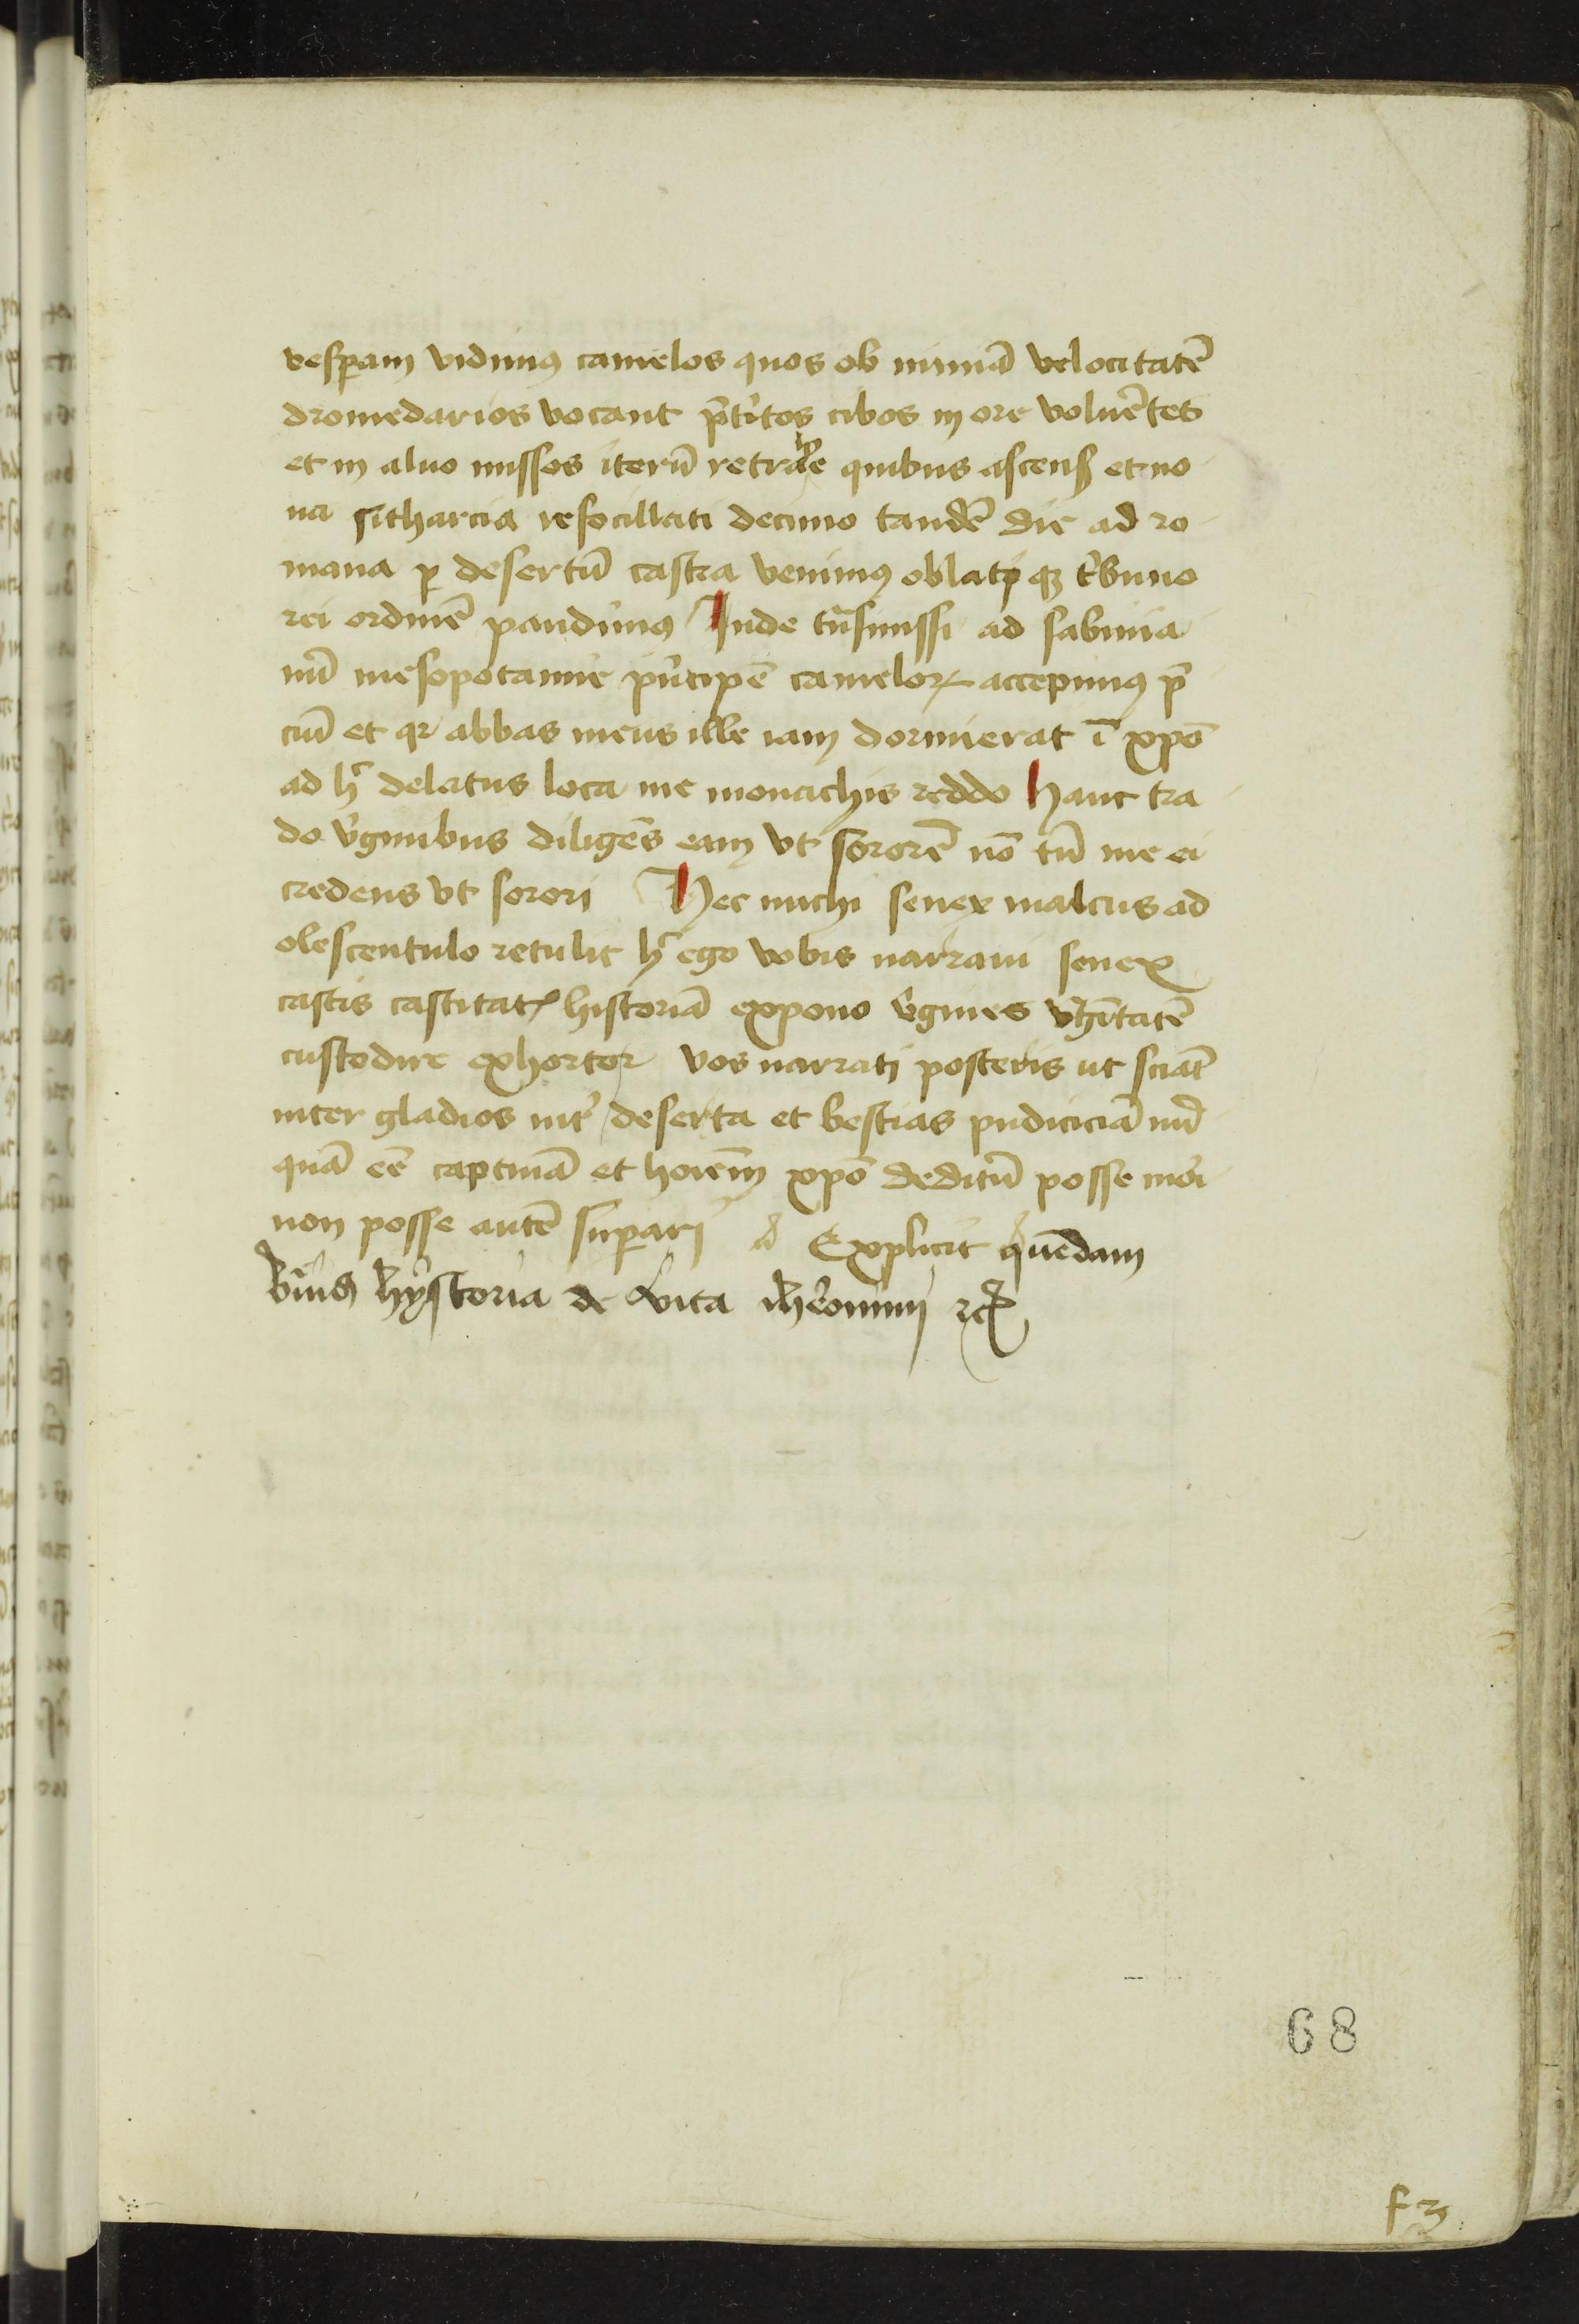 vesꝑam vidimꝰ camelos quos ob nimiā velocitatē
dromedarios vocant p̄titos cibos in ore voluētes
et in aluo missos iterū retrahe quibus ascensis et no
ua sitharcia refocillati decimo tandē die ad ro
mana ꝑ desertū castra venimꝰ oblatiqꝫ tͥbuno
rei ordinē pandimꝰ Inde tn̄smissi ad sabinia
nū mesopotamie pͥncipē cameloꝝ accepimꝰ p̄
ciū et qꝛ abbas meus ille iam dormierat ī xp̄o
ad h̄ delatus loca me monachis reddo hanc tra
do v̓ginibus diligēs eam vt sororē nō tn̄ me ei
credens vt sorori Hec michi senex malcus ad
olescentulo retulit h̄ ego vobis narraui senex
castis castitatꝭ historiā expono v̓gines v̓gītatē
custodire exhortor vos narrati posteris ut sciāt
inter gladios int̓ deserta et bestias pudiciciā nū
quā eē captiuā et hoīem xp̄o deditū posse mori
non posse autē suꝑari Explicit quedam
breuis hystoria de vita iheronimi ꝛcͣ
68
f 3